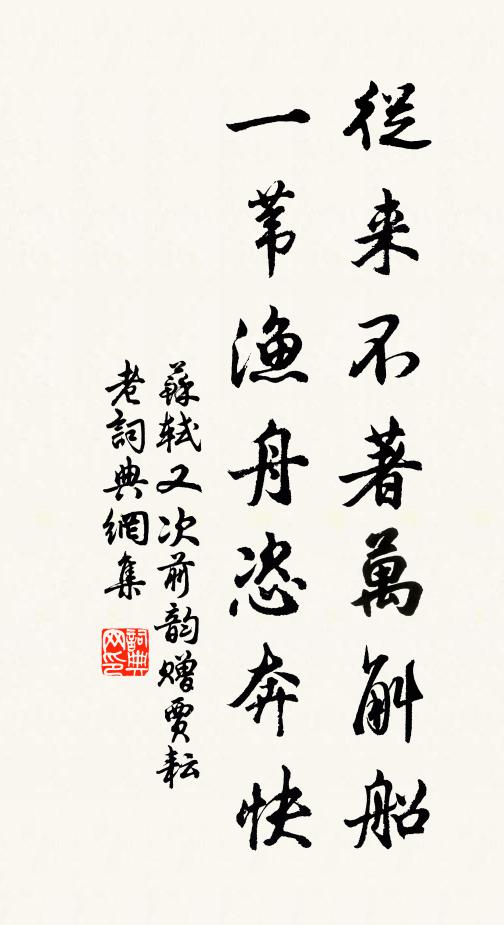 從来不著萬斛船
一苇渔舟恣奔快
蘇轼又次前韵赠賈耘
老詞典網集
詞典网印